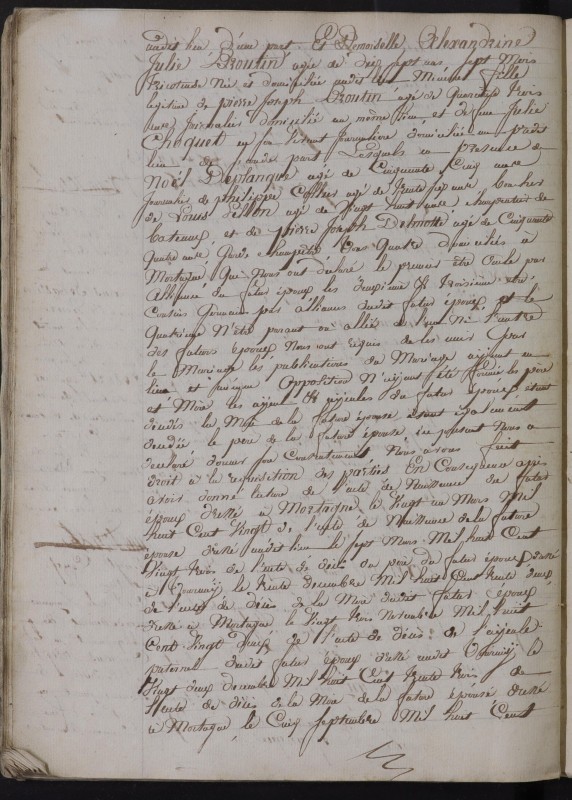 audit lieu d'une part Et Demoiselle Alexandrine
Julie Broutin agée de dix sept ans, sept Mois
Née et domiciliée audit lieu Mineure fille
legitime de pierre Joseph Broutin agé de Quarante trois
ans Journalier domicilié au même lieu et de feue Julie
Choquet en son vivant Journalière domiciliée audit
lieu de seconde part Lesquels en presence de
Noël Deplanque agé de Cinquante Cinq ans
Journalier de philippe agé de trente sept ans
de Louis Dillon agé de Vingt huit ans charpentier de
bateaux, et de pierre Joseph Delmotte agé de Cinquante
quatre ans, Garde champêtre tous Quatre domiciliés à
Mortagne Que Nous ont déclaré le premier être Oncle par
alliance du futur époux les deuxième & troisième être
Cousins Germains par alliance dudit futur époux et le
Quatrième N'être parent ou allié de l'un Ni l'autre
des futurs époux Nous ont requis de les unir par
le Mariage les publications du Mariage ayant eu
lieu et puisque Opposition N'ayant été formée les père
et Mère les ayeul & ayeules du futur époux étant
décédés la Mère de la future épouse étant également
décédée le père de la future épouse ici présent Nous a
déclaré donner son Consentement Nous avons fait
droit à la requisition des parties En Consequence après
avoir donné lecture de l'acte de Naissance du futur
époux dressé à Mortagne le Vingt un Mars Mil
huit Cent Vingt de l'acte de Naissance de la future
épouse dressé audit lieu le sept Mars Mil huit Cent
Vingt trois de l'acte de décès du père du futur époux dressé
à le trente decembre Mil huit Cent trente deux
de l'acte de décès de la Mère dudit futur époux
dressé à Mortagne le Vingt trois Novembre Mil huit
Cent Vingt de l'acte de décès de l'aïeule
paternel dudit futur époux dressé audit le
Vingt deux decembre Mil huit Cent trente trois de
l'acte de décès de la Mère de la future épouse dressé
à Mortagne, le Cinq Septembre Mil huit Cent